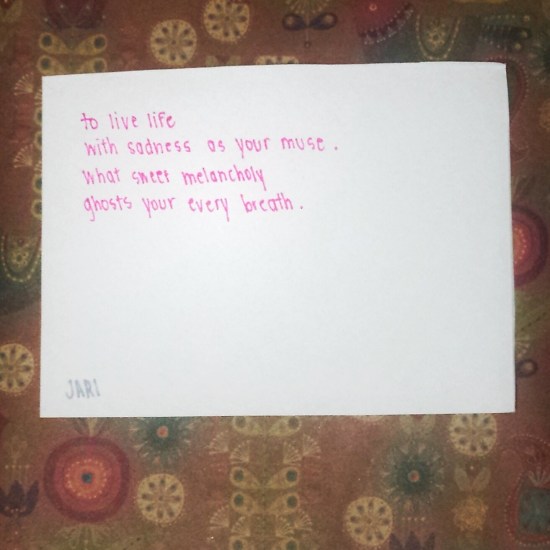 to live life
with sadness as your muse.
what sweet melancholy
ghosts your every breath.
JARI